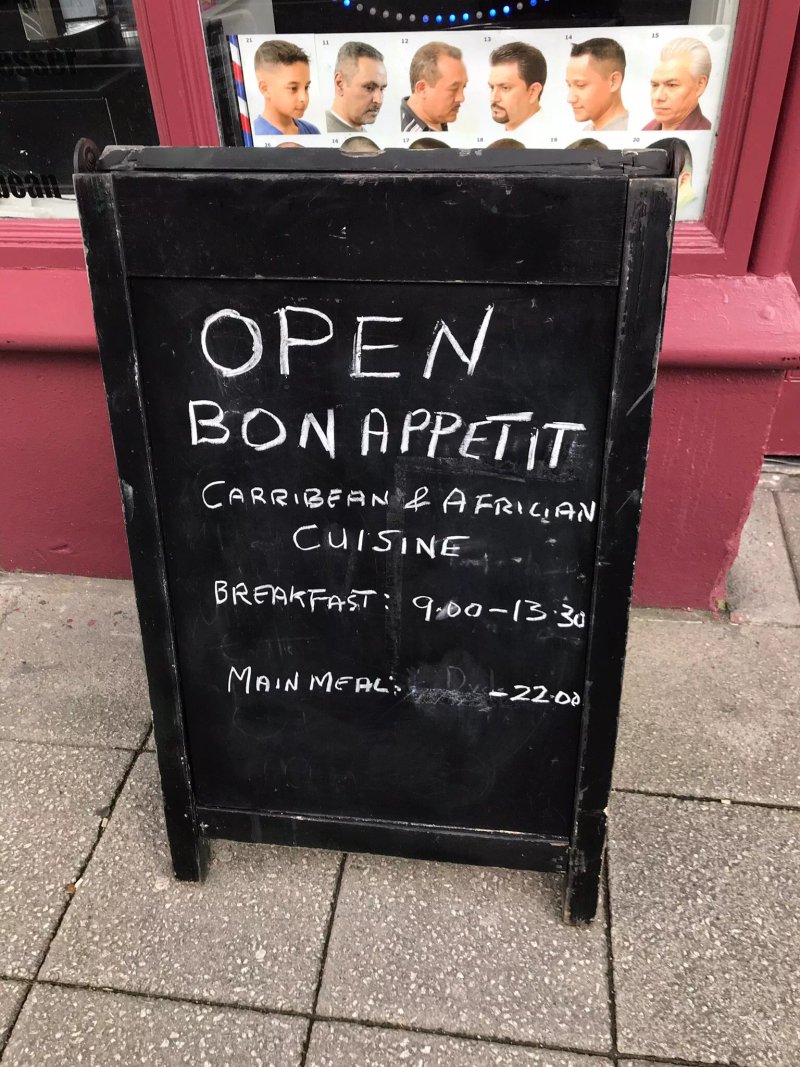 21
11
12
13
14
15
16
17
18
20
OPEN
BON APPETIT
CARRIBEAN & AFRICIAN
CUISINE
BREAKFAST: 9.00-13.30
MAIN MEAL: -22.00